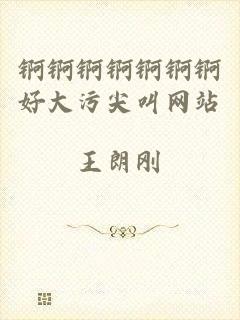 锕锕锕锕锕锕锕
好大污尖叫网站
王朗刚